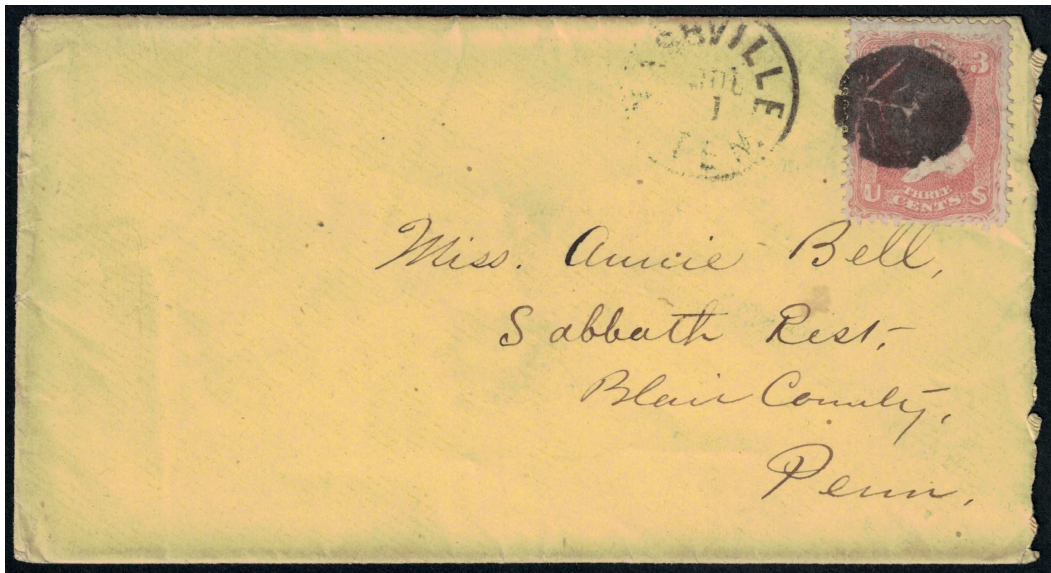 VILLE
1
TEN.
3
U S
THREE
CENTS
Miss. Annie Bell,
Sabbath Rest,
Blair County,
Penn,